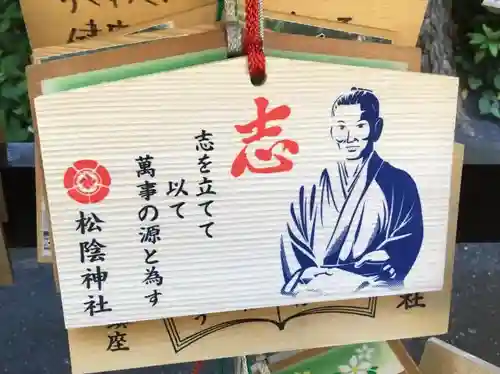 志
志を立てて
以て
萬事の源と為す
松陰神社
座
社